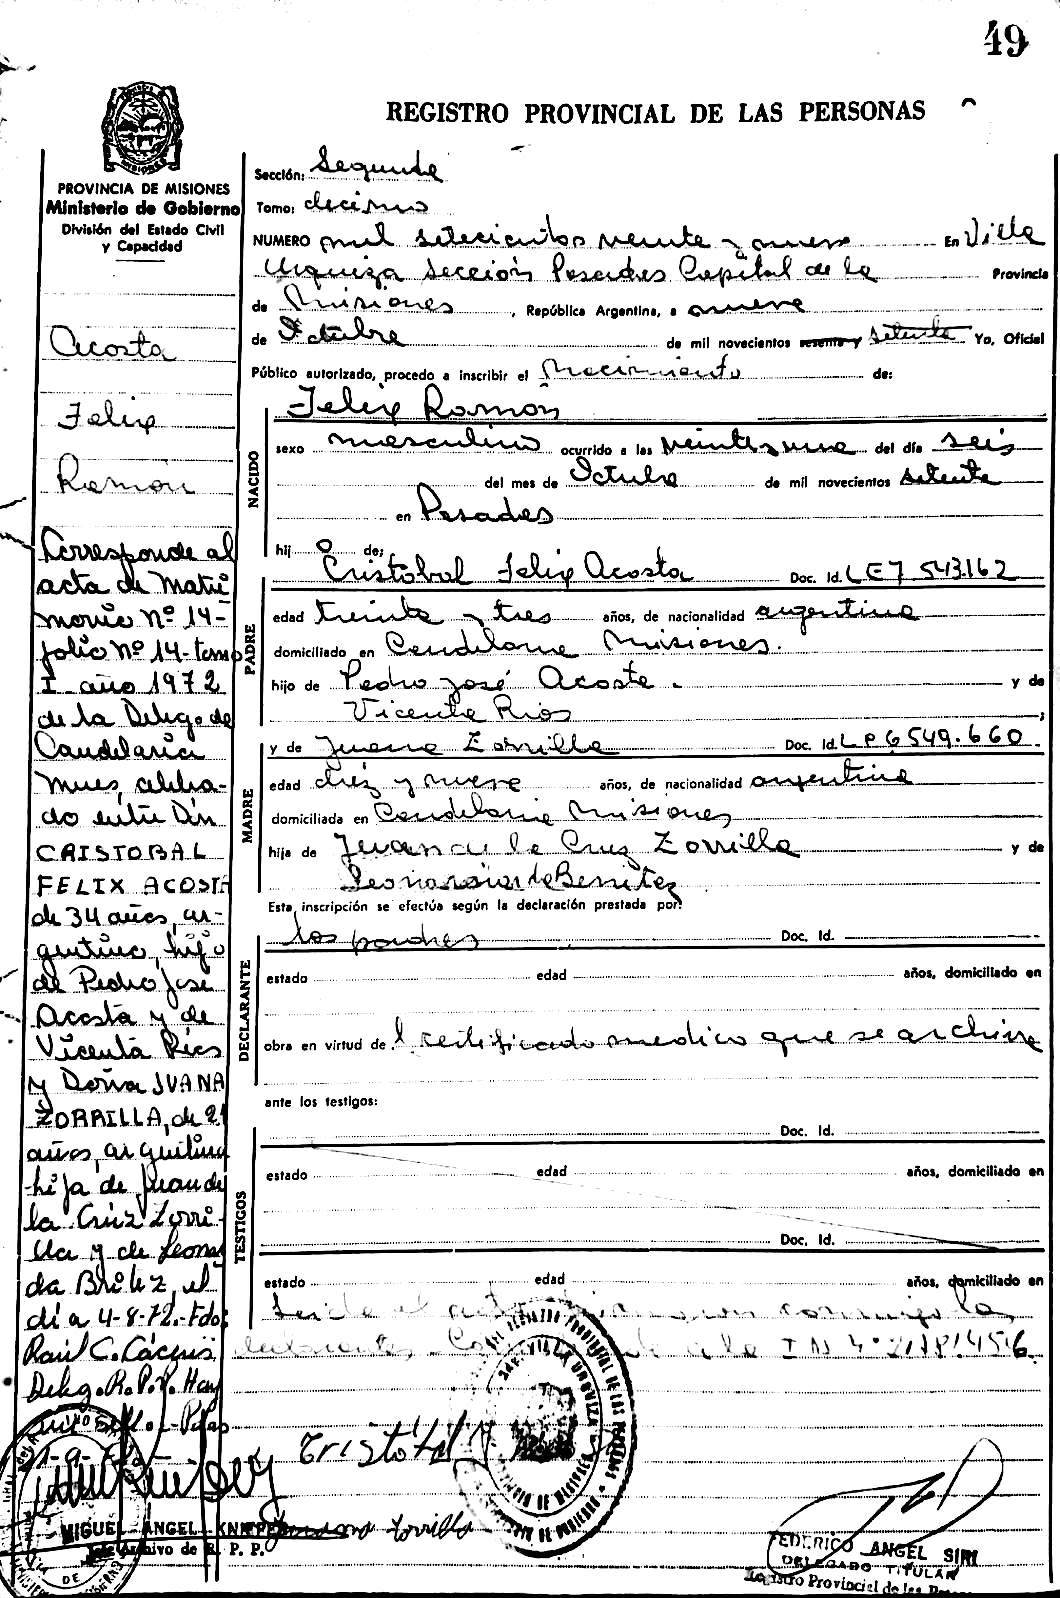 49
REGISTRO PROVINCIAL DE LAS PERSONAS
MISIONES
PROVINCIA DE MISIONES
Ministerio de Gobierno
División del Estado Civil
y Capacidad
Acosta
Felix
Ramón
Corresponde al
acta de Matri
monio Nº 14-
folio Nº 14-tomo
I año 1972
de la Deleg. de
Candelaria
Mnes, celebra-
do entre Don
CRISTOBAL
FELIX ACOSTA
de 34 años, ar-
gentino, hijo
de Pedro José
Acosta y de
Vicenta Ríos
y Doña JUANA
ZORRILLA, de 21
años, argentina
hija de Juan de
la Cruz Zorri-
lla y de Leonar
da Brítez, el
día 4-8-72.-Fdo:
Raúl C. Cáceres
Deleg. R.P.P. Hay
un sello.- Pdas
MIGUEL ANGEL KNIPPE
Archivo de R. P. P.
Sección: Segunda
Tomo: decimo
NUMERO mil setecientos veinte y nueve En Villa
Urquiza Sección Posadas Capital de la Provincia
de Misiones, República Argentina, a nueve
de Octubre de mil novecientos sesenta y setenta Yo, Oficial
Público autorizado, procedo a inscribir el Nacimiento de:
NACIDO
Felix Ramón
sexo masculino ocurrido a las veintiuna del día seis
del mes de Octubre de mil novecientos setenta
en Posadas
hij o de:
PADRE
Cristobal Felix Acosta Doc. Id. LE7 543.162
edad treinta y tres años, de nacionalidad argentina
domiciliado en Candelaria Misiones.
hijo de Pedro José Acosta. y de
Vicenta Rios ;
MADRE
y de Juana Zorrilla Doc. Id. LC 6549.660
edad diez y nueve años, de nacionalidad argentina
domiciliada en Candelaria Misiones
hija de Juan de la Cruz Zorrilla y de
Benitez
Esta inscripción se efectúa según la declaración prestada por:
DECLARANTE
los padres Doc. Id.
estado edad años, domiciliado en
obra en virtud de l certificado medico que se archiva
ante los testigos:
TESTIGOS
Doc. Id.
estado edad años, domiciliado en
Doc. Id.
estado edad años, domiciliado en
Leida el acta firman conmigo los
Juana Zorrilla
FEDERICO ANGEL SIRI
DELEGADO TITULAR
Registro Provincial de las